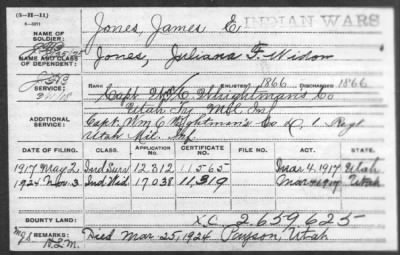 (3-22-11)
6-3271
INDIAN WARS
NAME OF SOLDIER:
Jones, James E.
NAME AND CLASS OF DEPENDENT:
Jones, Juliana F. Widow
RANK ENLISTED 1866 DISCHARGED 1866
SERVICE:
Capt. Wm C. Whightman's Co
Utah Ty Mil. Inf
ADDITIONAL SERVICE:
Capt. Wm C Whightman's Co D, 1 Regt
Utah Mil. Inf.
DATE OF FILING. CLASS. APPLICATION NO. CERTIFICATE NO. FILE NO. ACT. STATE.
1917 May 2 Ind Surv 12312 11565 Mar 4, 1917 Utah
1924 Nov. 3 Ind Wid 17038 11,319 Mar 4 1917 Utah
BOUNTY LAND:
XC. 2-659-625
REMARKS: Died Mar. 25, 1924 Payson, Utah